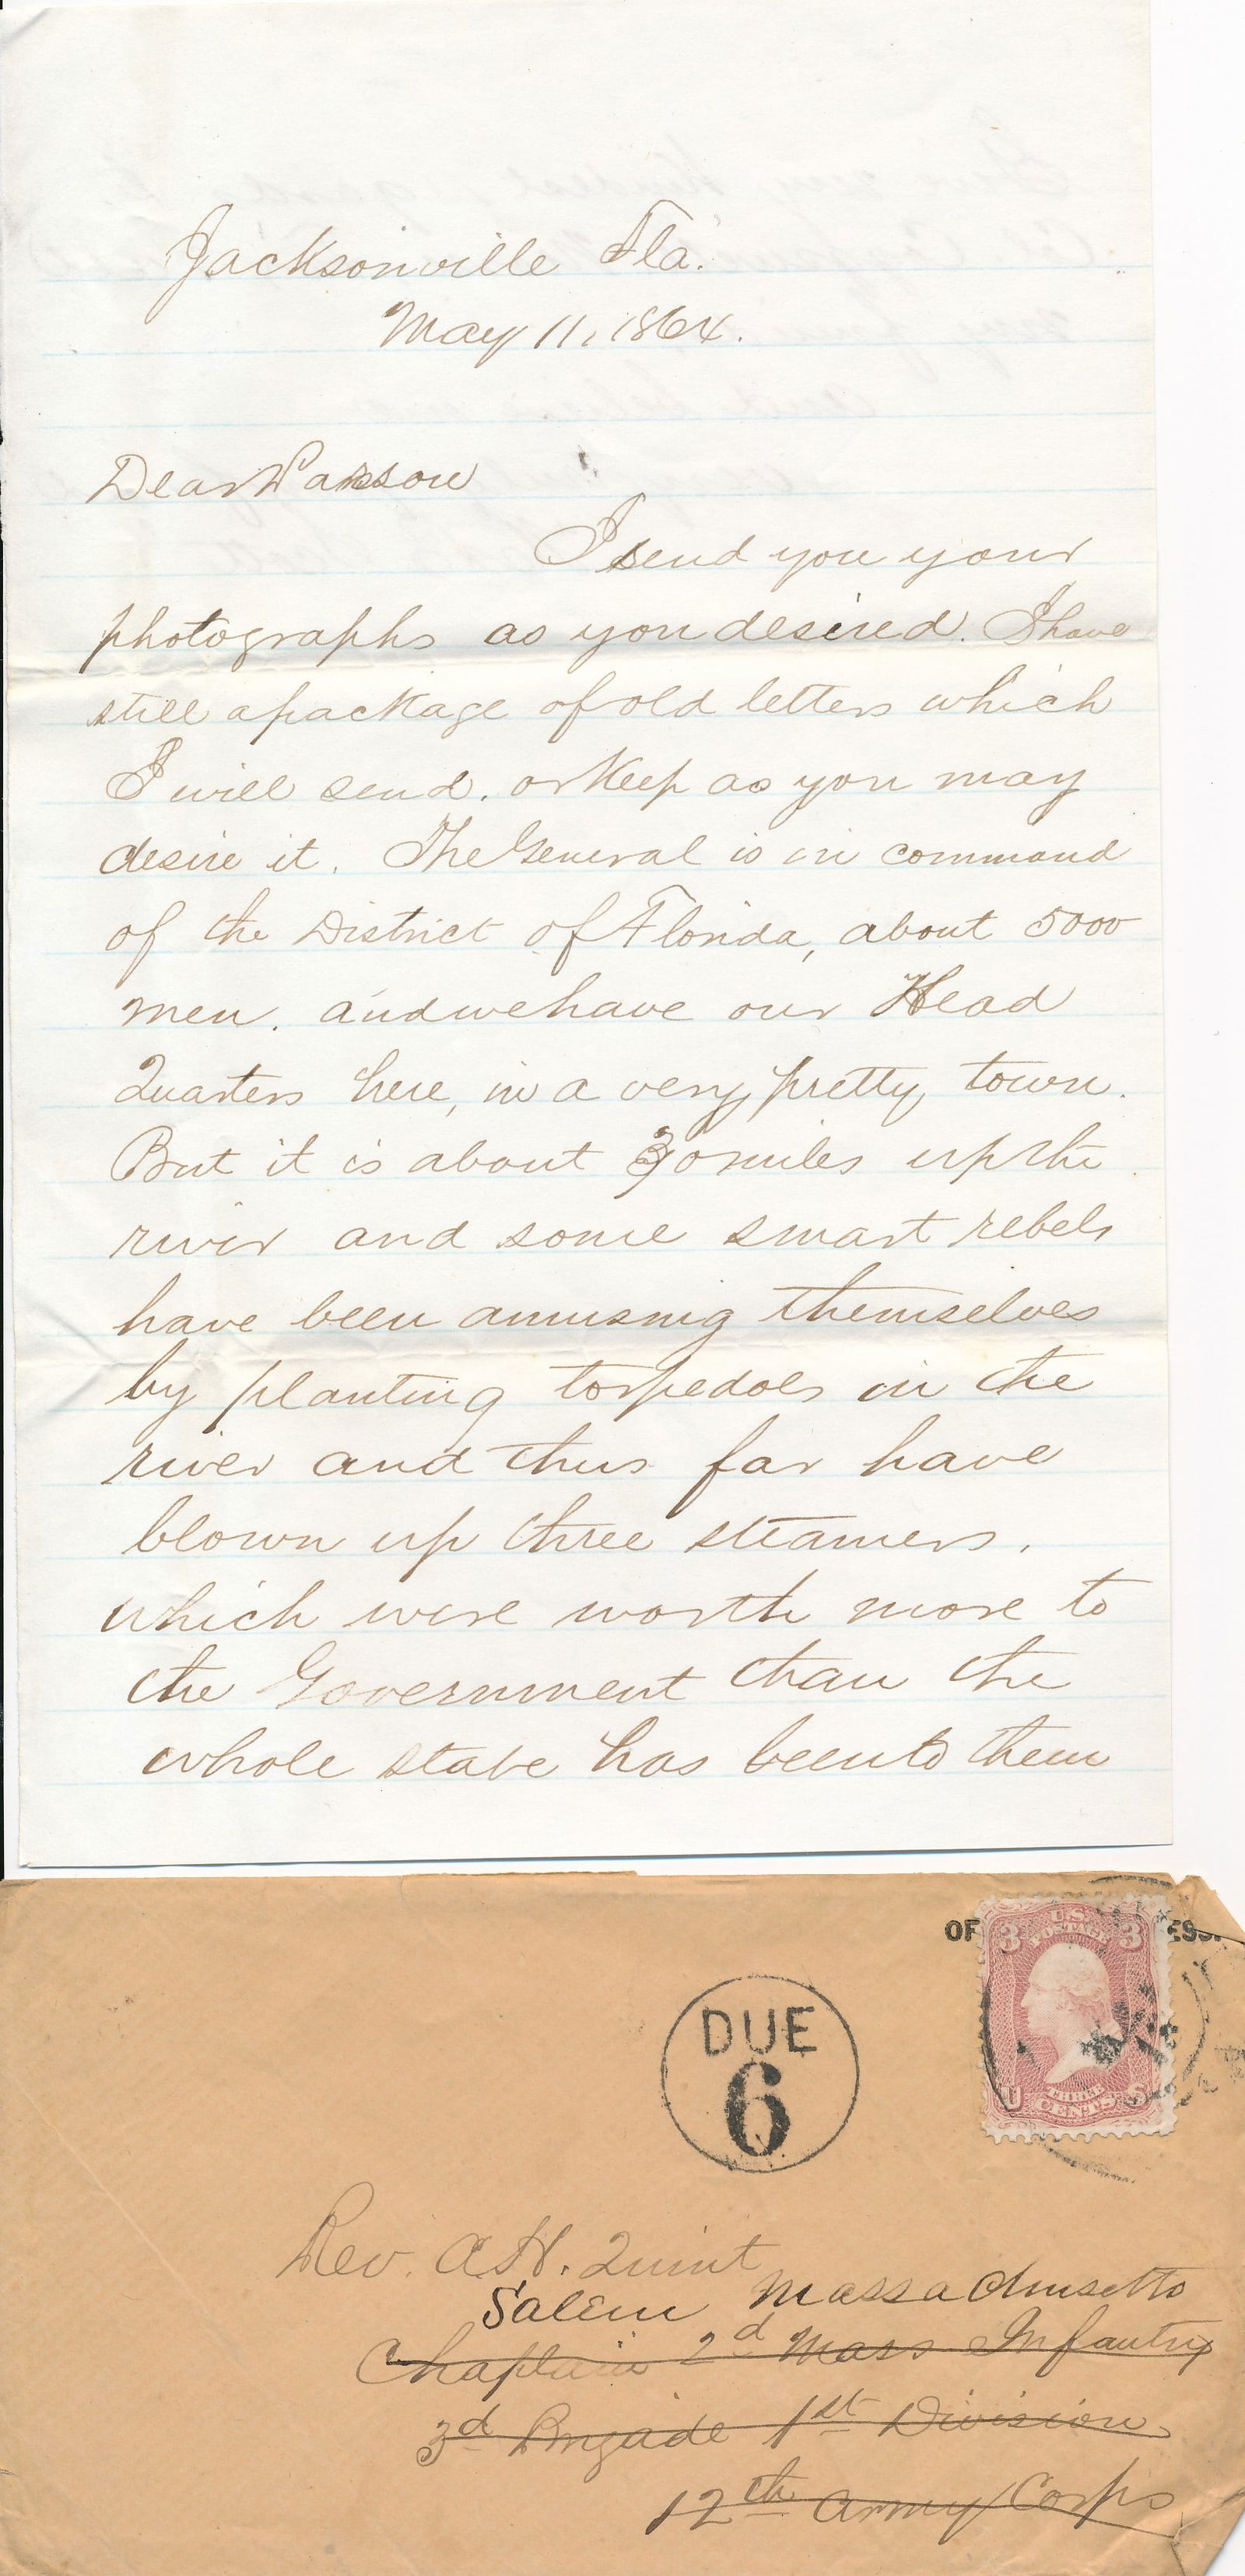 Jacksonville Fla.
May 11, 1864.
Dear Parson
I send you your
photographs as you desired. I have
still a package of old letters which
I will send. or keep as you may
desire it. The General is in command
of the District of Florida, about 5000
men. and we have our Head
Quarters here, in a very pretty town.
But it is about 30 miles up the
river and some smart rebels
have been amusing themselves
by planting torpedoes in the
river and thus far have
blown up three steamers.
which were worth more to
the Government than the
whole state has been to them
OF ESS.
U.S. POSTAGE
3 3
U THREE CENTS S
DUE
6
Rev. A.H. Quint
Salem Massachusetts
Chaplain 2d Mass Infantry
3d Brigade 1st Division
12th Army Corps